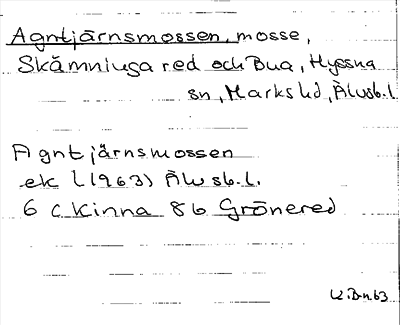 Agntjärnsmossen, mosse,
Skämningared och Bua, Hyssna
sn, Marks hd, Älvsb.l.
Agntjärnsmossen
ek l (1963) Älvsb.l.
6 c Kinna 8b Grönered